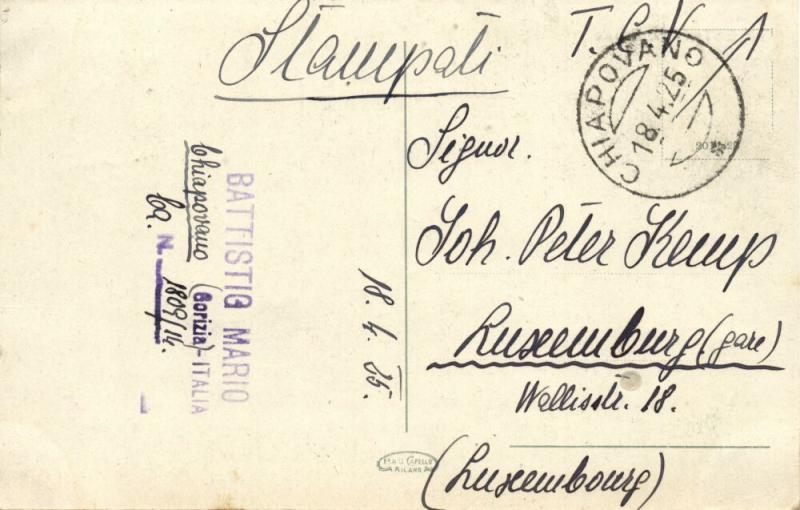 Stampati
T. C. V.
CHIAPOVANO
18.4.25
Signor.
Joh. Peter Kemp
Luxemburg (gare)
Wallisstr. 18.
(Luxembourg)
18. 4. 25.
BATTISTIG MARIO
Chiapovano (Gorizia)-ITALIA
Ca. N. 1809/14.
CAPELLO
MILANO